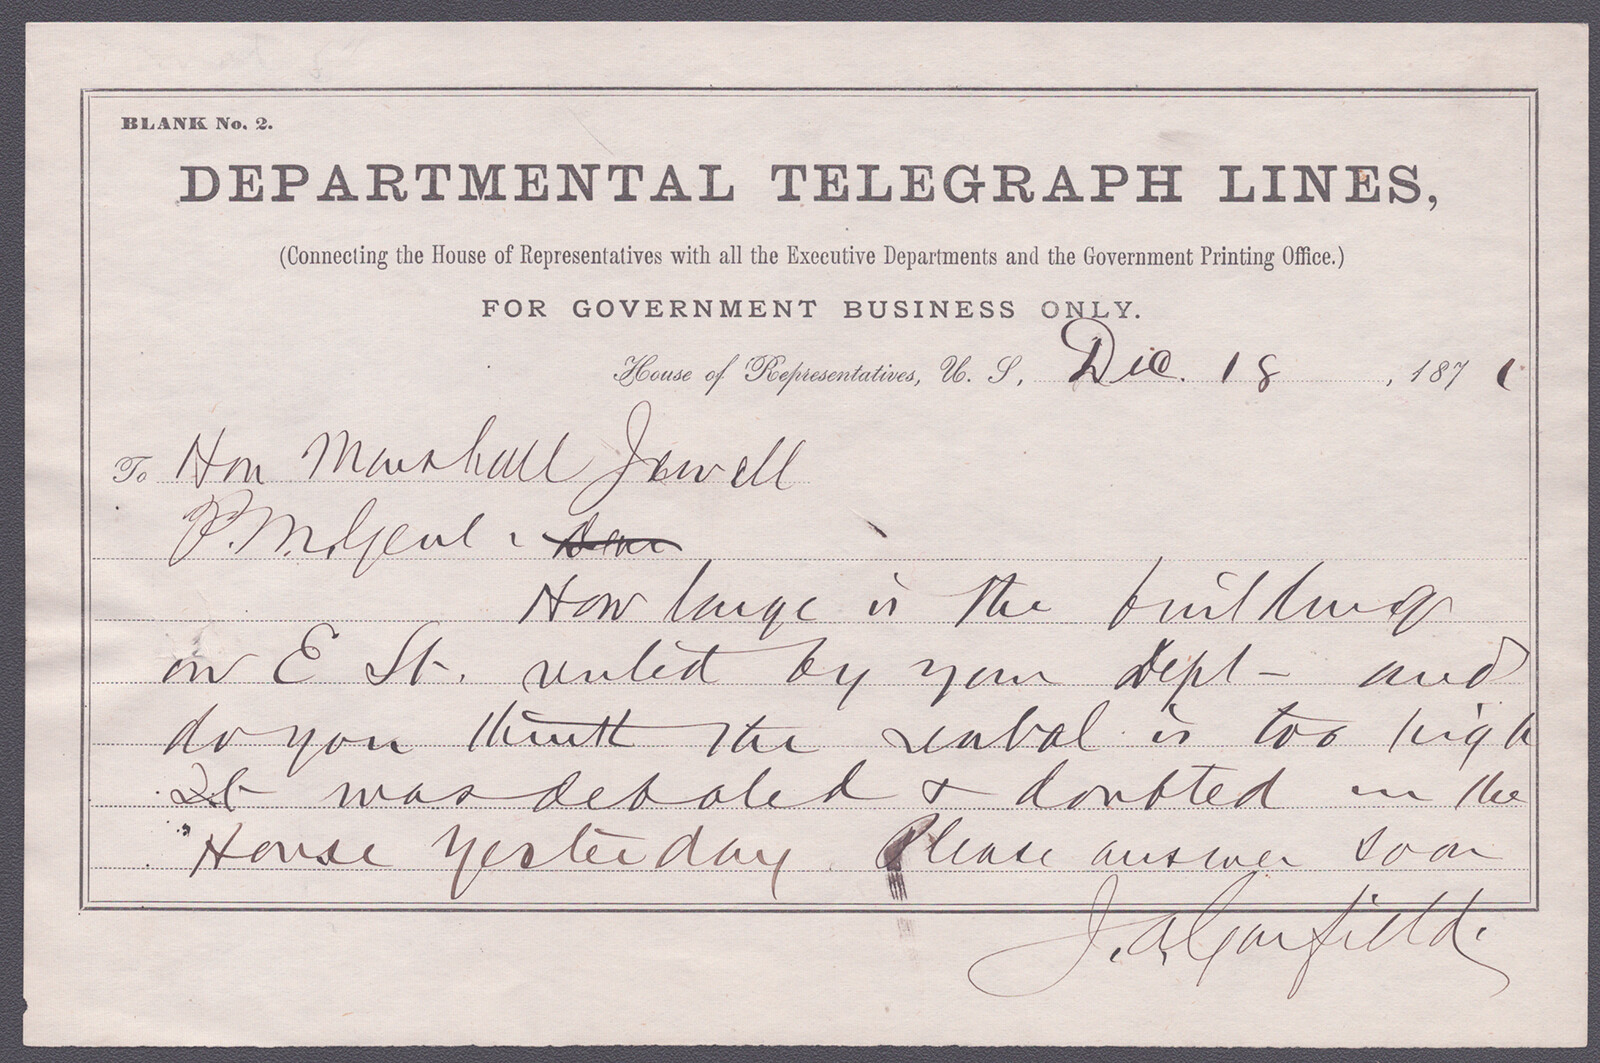 BLANK No. 2.
DEPARTMENTAL TELEGRAPH LINES,
(Connecting the House of Representatives with all the Executive Departments and the Government Printing Office.)
FOR GOVERNMENT BUSINESS ONLY.
House of Representatives, U. S., Dec. 18, 187
To Hon Marshall Jewell
P. M. Genl.
How large is the building
on E St. rented by your Dept - and
do you think the rental is too high
It was debated & doubted in the
House yesterday Please answer soon
J. A. Garfield.